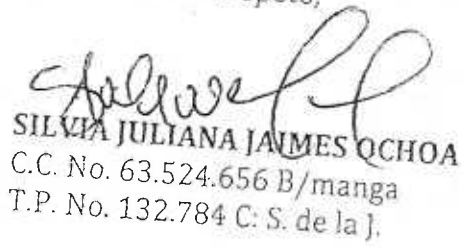 SILVIA JULIANA JAIMES OCHOA
C.C. No. 63.524.656 B/manga
T.P. No. 132.784 C: S. de la J.